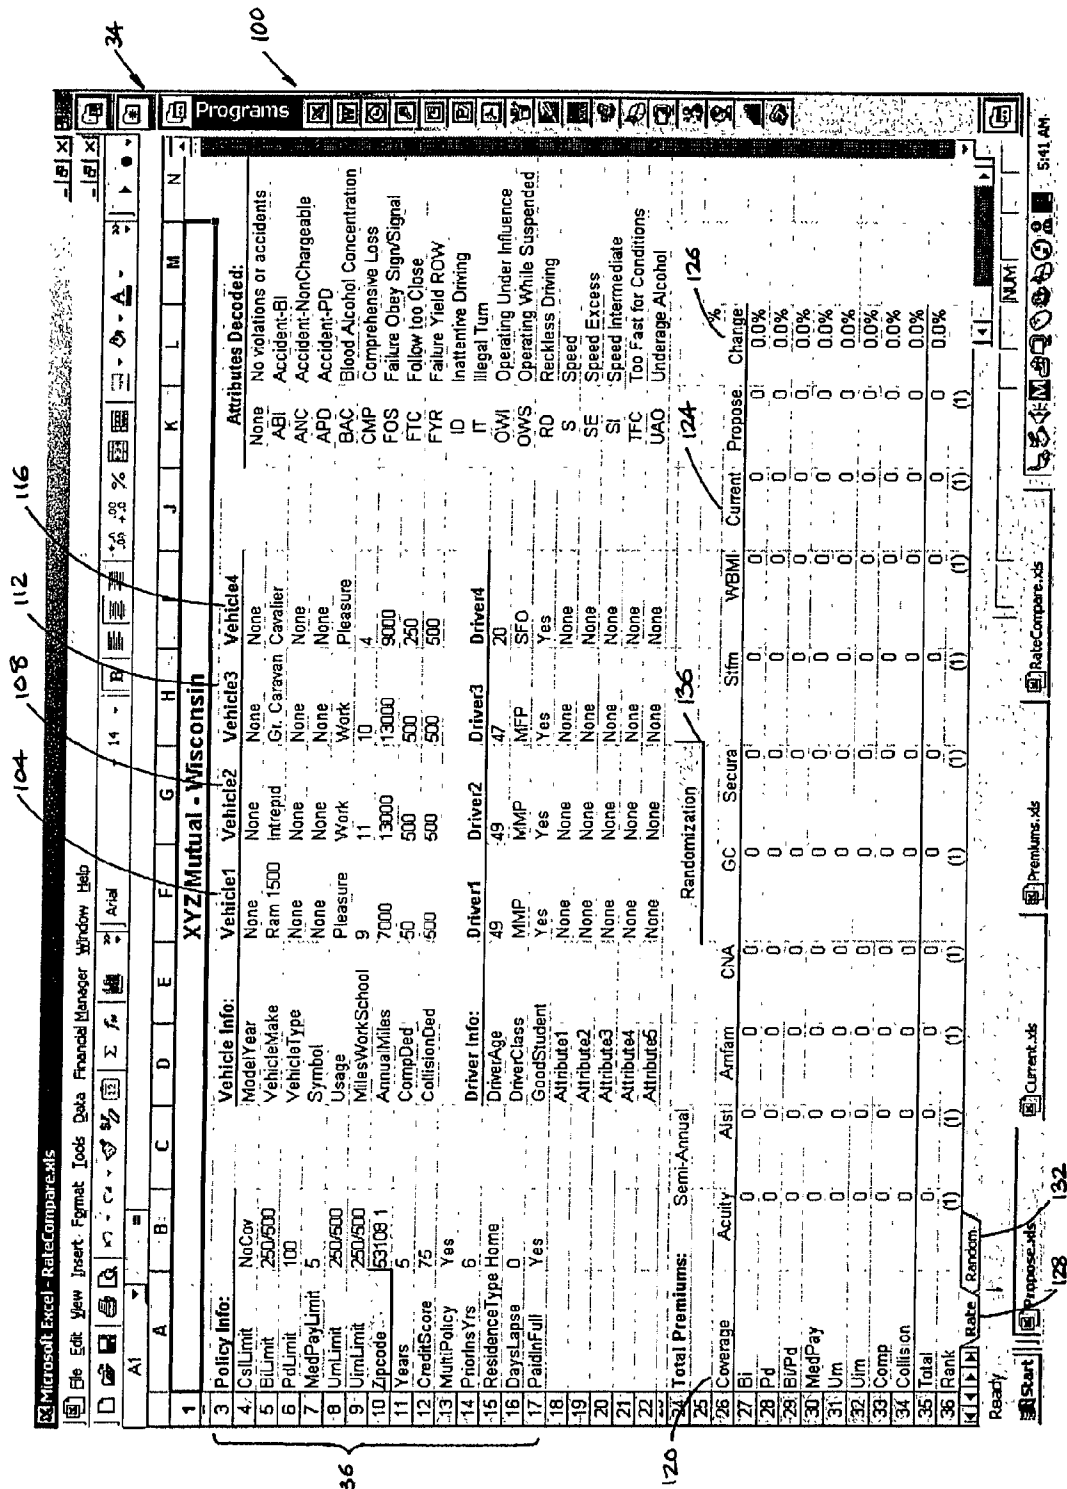 Microsoft Excel - RateCompare.xls
File Edit View Insert Format Tools Data Financial Manager Window Help
Arial 14 B
A1 =
Programs
A B C D E F G H I J K L M N
1 XYZ Mutual - Wisconsin
3 Policy Info: Vehicle Info: Vehicle1 Vehicle2 Vehicle3 Vehicle4 Attributes Decoded:
4 CslLimit NoCov ModelYear None None None None None No violations or accidents
5 BiLimit 250/500 VehicleMake Ram 1500 Intrepid Gr. Caravan Cavalier ABI Accident-BI
6 PdLimit 100 VehicleType None None None None ANC Accident-NonChargeable
7 MedPayLimit 5 Symbol None None None None APD Accident-PD
8 UmLimit 250/500 Usage Pleasure Work Work Pleasure BAC Blood Alcohol Concentration
9 UimLimit 250/500 MilesWorkSchool 9 11 10 4 CMP Comprehensive Loss
10 Zipcode 53108 1 AnnualMiles 7000 13000 13000 9000 FOS Failure Obey Sign/Signal
11 Years 5 CompDed 50 500 500 250 FTC Follow too Close
12 CreditScore 75 CollisionDed 500 500 500 500 FYR Failure Yield ROW
13 MultiPolicy Yes ID Inattentive Driving
14 PriorInsYrs 6 Driver Info: Driver1 Driver2 Driver3 Driver4 IT Illegal Turn
15 ResidenceType Home DriverAge 49 49 47 20 OWI Operating Under Influence
16 DaysLapse 0 DriverClass MMP MMP MFP SFO OWS Operating While Suspended
17 PaidInFull Yes GoodStudent Yes Yes Yes Yes RD Reckless Driving
18 Attribute1 None None None None S Speed
19 Attribute2 None None None None SE Speed Excess
20 Attribute3 None None None None SI Speed Intermediate
21 Attribute4 None None None None TFC Too Fast for Conditions
22 Attribute5 None None None None UAO Underage Alcohol
24 Total Premiums: Semi-Annual Randomization
25 %
26 Coverage Acuity Alsti Amfam CNA GC Secura Stfm WBMI Current Propose Change
27 Bi 0 0 0 0 0 0 0 0 0 0 0.0%
28 Pd 0 0 0 0 0 0 0 0 0 0 0.0%
29 Bi/Pd 0 0 0 0 0 0 0 0 0 0 0.0%
30 MedPay 0 0 0 0 0 0 0 0 0 0 0.0%
31 Um 0 0 0 0 0 0 0 0 0 0 0.0%
32 Uim 0 0 0 0 0 0 0 0 0 0 0.0%
33 Comp 0 0 0 0 0 0 0 0 0 0 0.0%
34 Collision 0 0 0 0 0 0 0 0 0 0 0.0%
35 Total 0 0 0 0 0 0 0 0 0 0 0.0%
36 Rank (1) (1) (1) (1) (1) (1) (1) (1) (1) (1)
Rate Random
Ready NUM
Start Propose.xls Current.xls Premiums.xls RateCompare.xls 5:41 AM
34
100
104
108
112
116
36
120
124
126
128
132
136